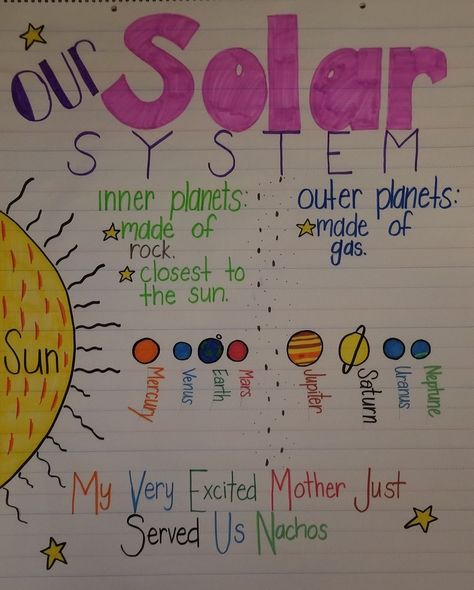 our Solar
SYSTEM
inner planets:
made of
rock.
closest to
the sun.
outer planets:
made of
gas.
Sun
Mercury
Venus
Earth
Mars
Jupiter
Saturn
Uranus
Neptune
My Very Excited Mother Just
Served Us Nachos